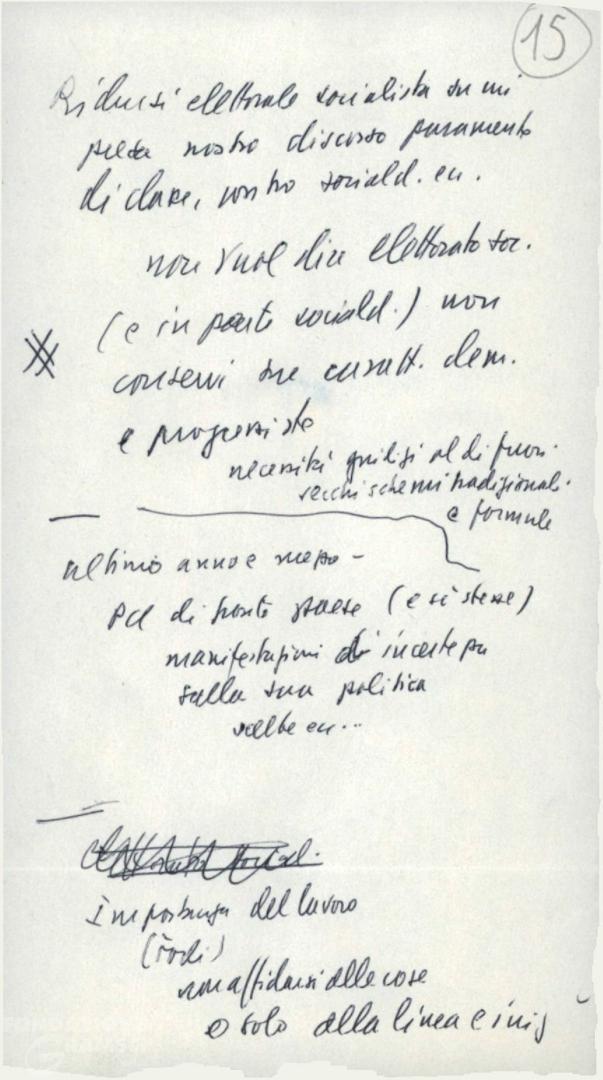 15
Ridursi elettorale socialista su mi
nostro discorso puramente
di classe, contro sociald. ecc.
non vuol dire elettorato soc.
(e in parte sociald.) non
conservi sue caratt. dem.
e progressiste
necessità giudizi al di fuori
vecchi schemi tradizionali
e formule
ultimo anno e mezzo -
PCI di fronte paese (e si stesse)
manifestazioni di incertezza
sulla sua politica
scelte ecc...
Importanza del lavoro
non affidarsi alle cose
o solo alla linea e iniz